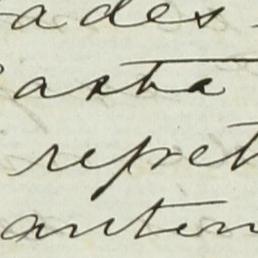 ades
asta
repet
anten